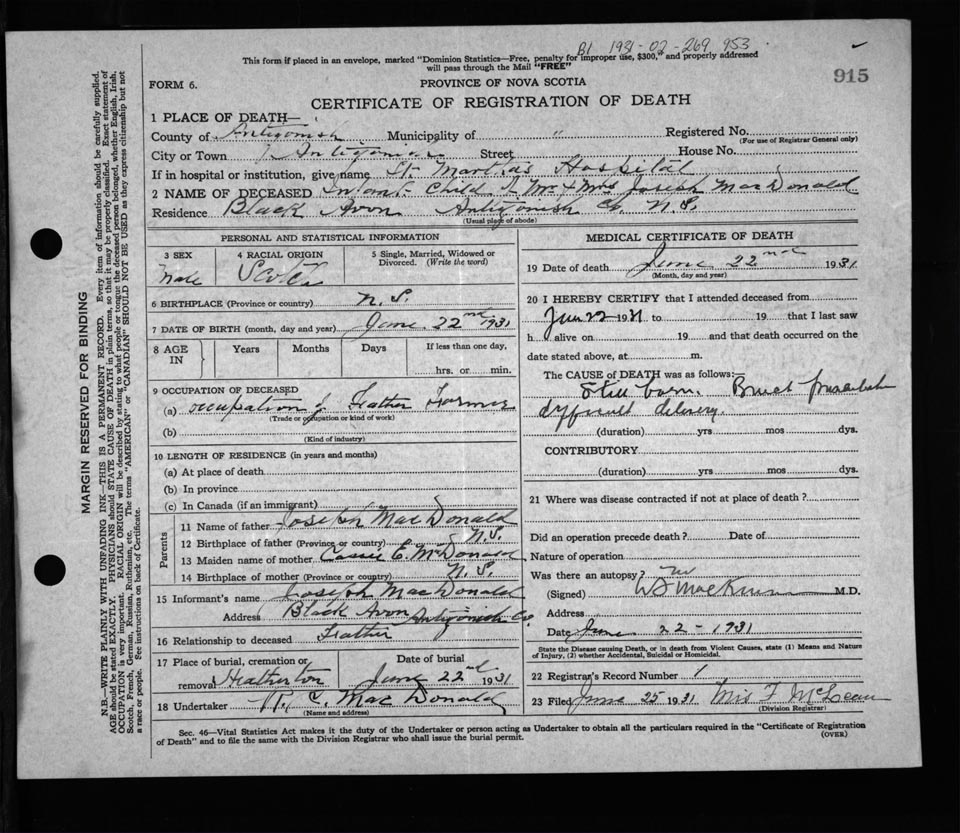 B1 1931-02-269 953
This form if placed in an envelope, marked "Dominion Statistics—Free, penalty for improper use, $300," and properly addressed
will pass through the Mail "FREE"
915
FORM 6.
PROVINCE OF NOVA SCOTIA
CERTIFICATE OF REGISTRATION OF DEATH
1 PLACE OF DEATH—
County of Antigonish Municipality of " Registered No.
(For use of Registrar General only)
City or Town Antigonish Street House No.
If in hospital or institution, give name St. Marthas Hospital
2 NAME OF DECEASED Infant Child of Mr & Mrs Joseph MacDonald
Residence Black Avon Antigonish Co. N.S.
(Usual place of abode)
PERSONAL AND STATISTICAL INFORMATION
3 SEX
Male
4 RACIAL ORIGIN
Scotch
5 Single, Married, Widowed or
Divorced. (Write the word)
6 BIRTHPLACE (Province or country) N.S.
7 DATE OF BIRTH (month, day and year) June 22nd 1931
8 AGE
IN
Years
Months
Days
If less than one day,
hrs. or min.
9 OCCUPATION OF DECEASED
(a) occupation of Father Farmer
(Trade or occupation or kind of work)
(b)
(Kind of industry)
10 LENGTH OF RESIDENCE (in years and months)
(a) At place of death
(b) In province
(c) In Canada (if an immigrant)
Parents
11 Name of father Joseph MacDonald
12 Birthplace of father (Province or country) N.S.
13 Maiden name of mother Cassie C. McDonald
14 Birthplace of mother (Province or country) N.S.
15 Informant's name Joseph MacDonald
Address Black Avon Antigonish Co.
16 Relationship to deceased Father
17 Place of burial, cremation or
removal Heatherton
Date of burial
June 22nd 1931
18 Undertaker MacDonald
(Name and address)
MEDICAL CERTIFICATE OF DEATH
19 Date of death June 22nd 1931
(Month, day and year)
20 I HEREBY CERTIFY that I attended deceased from
Jun 22 1931 to 19 that I last saw
h alive on 19 and that death occurred on the
date stated above, at m.
The CAUSE OF DEATH was as follows:
Still born. Breech
difficult delivery.
(duration) yrs mos dys.
CONTRIBUTORY
(duration) yrs mos dys.
21 Where was disease contracted if not at place of death?
Did an operation precede death? Date of
Nature of operation
Was there an autopsy? no
(Signed) M.D.
Address
Date June 22-1931
State the Disease causing Death, or in death from Violent Causes, state (1) Means and Nature
of Injury, (2) whether Accidental, Suicidal or Homicidal.
22 Registrar's Record Number 1
23 Filed June 25 1931 Mrs F McLean
(Division Registrar)
Sec. 46—Vital Statistics Act makes it the duty of the Undertaker or person acting as Undertaker to obtain all the particulars required in the "Certificate of Registration
of Death" and to file the same with the Division Registrar who shall issue the burial permit.
(OVER)
MARGIN RESERVED FOR BINDING
N.B.—WRITE PLAINLY WITH UNFADING INK—THIS IS A PERMANENT RECORD. Every item of information should be carefully supplied.
AGE should be stated EXACTLY. PHYSICIANS should STATE CAUSE OF DEATH in plain terms, so that it may be properly classified. Exact statement of
OCCUPATION is very important. RACIAL ORIGIN will be described by stating to what people or tongue the deceased person belonged, whether English, Irish,
Scotch, French, German, Russian, Ruthenian, etc. The terms "AMERICAN" or "CANADIAN" SHOULD NOT BE USED as they express citizenship but not
a race or people. See instructions on back of Certificate.